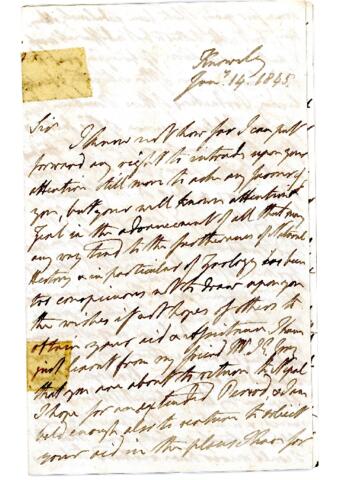 Knowsley
Jany. 14. 1845.
Sir
I know not how far I can put
forward any right to intrude upon your
attention still more to ask any favour of
you, but your well known attention &
Zeal in the advancement of all that may
any way tend to the furtherance of Natural
History & in particular of Zoology has been
too conspicuous not to draw upon you
the wishes if not hopes of others to
obtain your aid & assistance. I have
just learnt from my friend Mr. J. E. Gray
that you are about to return to Nepal
I hope for an extended Period, & I am
bold enough also to venture to solicit
your aid in the plans I have for